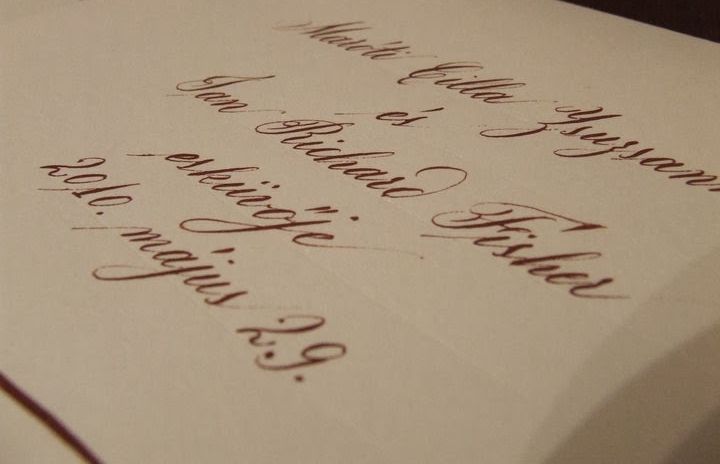 Maróti Cilla Zsuzsann
és
Ian Richard Fisher
esküvője
2010. május 29.